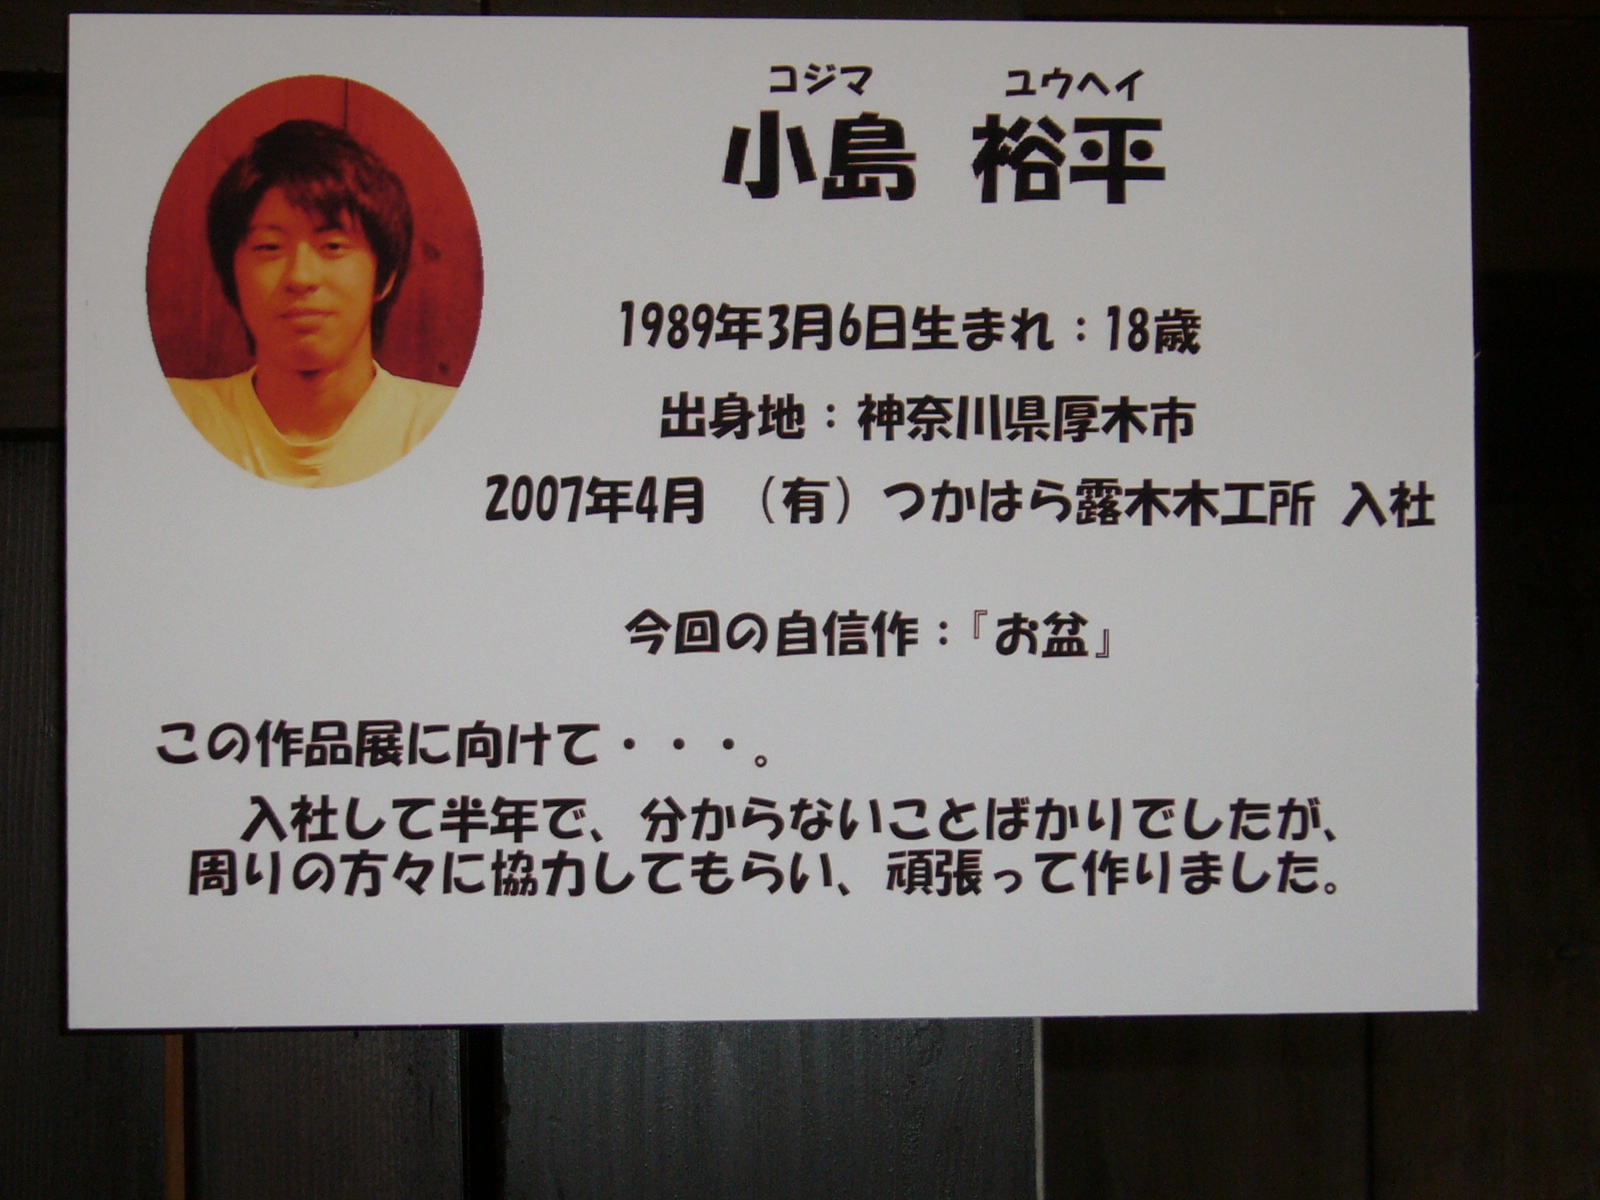 コジマ ユウヘイ
小島 裕平
1989年3月6日生まれ：18歳
出身地：神奈川県厚木市
2007年4月 （有）つかはら露木木工所 入社
今回の自信作：『お盆』
この作品展に向けて・・・。
入社して半年で、分からないことばかりでしたが、
周りの方々に協力してもらい、頑張って作りました。